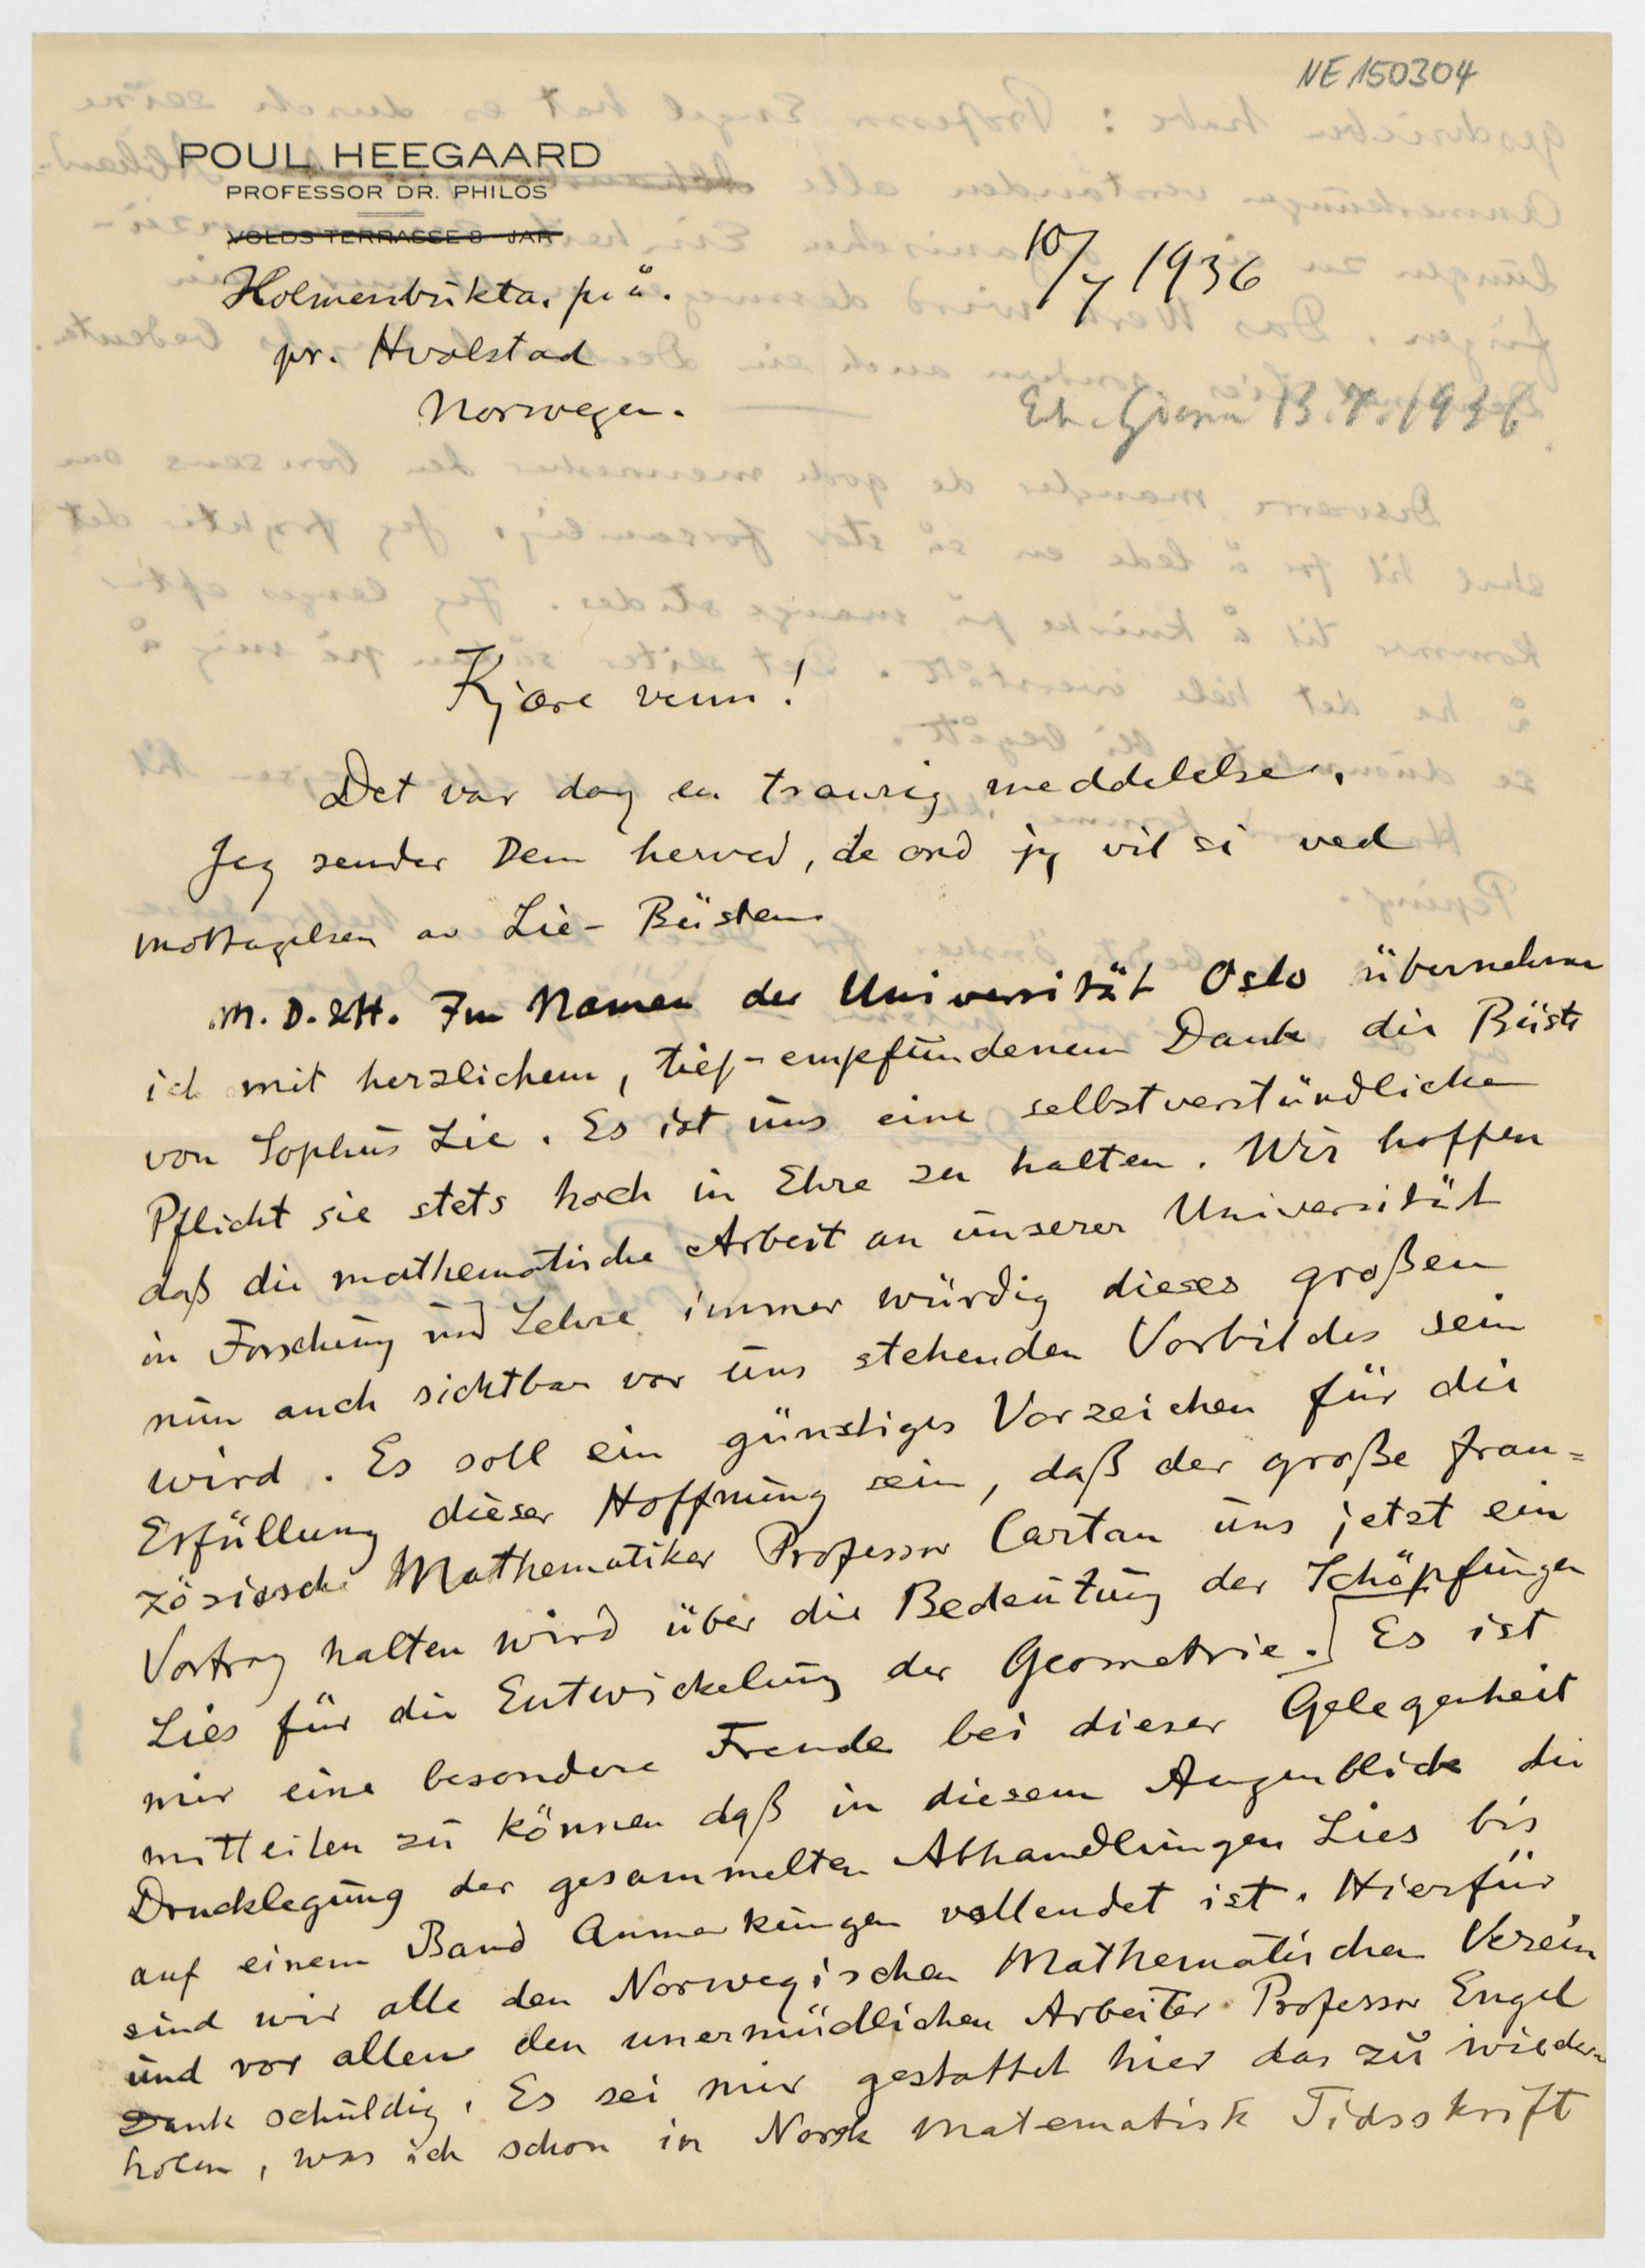 NE 150304
POUL HEEGAARD
PROFESSOR DR. PHILOS
VOLDS TERRASSE 8 JAR
Holmenbukta, p. å.
pr. Hvalstad
Norwegen.
10/7 1936
Eh. Giessen 13.7.1936
Kjære venn!
Det var dog en traurig meddelelse.
Jeg sender Dem herved, de ord jeg vil si ved
mottagelsen av Lie-Büsten
M. D. u H. Im Namen der Universität Oslo übernehme
ich mit herzlichem, tief-empfundenem Dank die Büste
von Sophus Lie. Es ist uns eine selbstverständliche
Pflicht sie stets hoch in Ehre zu halten. Wir hoffen
daß die mathematische Arbeit an unserer Universität
in Forschung und Lehre immer würdig dieses großen
nun auch sichtbar vor uns stehenden Vorbildes sein
wird. Es soll ein günstiges Vorzeichen für die
Erfüllung dieser Hoffnung sein, daß der große fran=
zösische Mathematiker Professor Cartan uns jetzt ein
Vortrag halten wird über die Bedeutung der Schöpfungen
Lies für die Entwickelung der Geometrie.] Es ist
mir eine besondere Freude bei dieser Gelegenheit
mitteilen zu können daß in diesem Augenblick die
Drucklegung der gesammelten Abhandlungen Lies bis
auf einem Band Anmerkungen vollendet ist. Hierfür
sind wir alle den Norwegischen Mathematischen Verein
und vor allem den unermüdlichen Arbeiter Professor Engel
Dank schuldig. Es sei mir gestattet hier das zu wieder=
holen, was ich schon in Norsk Matematisk Tidsskrift